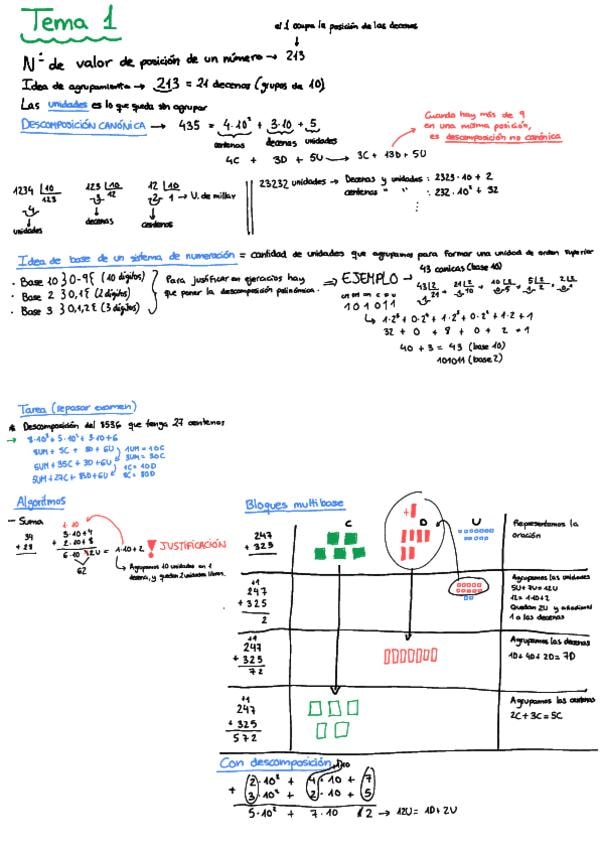 Tema 1
el 1 ocupa la posición de las decenas
Nº de valor de posición de un número → 213
Idea de agrupamiento → 213 = 21 decenas (grupos de 10)
Las unidades es lo que queda sin agrupar
DESCOMPOSICIÓN CANÓNICA → 435 = 4·10² + 3·10 + 5
centenas decenas unidades
4C + 3D + 5U → 3C + 13D + 5U
Cuando hay más de 9
en una misma posición,
es descomposición no canónica
1234 |10
123
4
unidades
123 |10
3 12
decenas
12 |10
2 1 → U. de millar
centenas
23232 unidades → Decenas y unidades : 2323·10 + 2
centenas " " : 232·10² + 32
Idea de base de un sistema de numeración = cantidad de unidades que agrupamos para formar una unidad de orden superior
· Base 10 } 0-9 { (10 dígitos)
· Base 2 } 0,1 { (2 dígitos)
· Base 3 } 0,1,2 { (3 dígitos)
Para justificar en ejercicios hay
que poner la descomposición polinómica.
⇒ EJEMPLO →
43 canicas (base 10)
43|2 21|2 10|2 5|2 2|2
101011
32 + 0 + 8 + 0 + 2 + 1
40 + 3 = 43 (base 10)
101011 (base 2)
Tarea (repasar examen)
* Descomposición del 8536 que tenga 27 centenas
→ 8·10³ + 5·10² + 3·10 + 6
8UM + 5C + 3D + 6U
1UM = 10C
3UM = 30C
1C = 10D
8C = 80D
Algoritmos
- Suma
34
+ 28
3·10+4
+ 2·10+8
6·10
2U = 1·10+2
62
! JUSTIFICACIÓN
Agrupamos 10 unidades en 1
decena, y quedan 2 unidades libres.
Bloques multibase
C D U
247
+ 325
+1
Representamos la
oración
+1
247
+ 325
2
Agrupamos las unidades
5U + 7U = 12U
12 = 1·10+2
Quedan 2U y añadimos
1 a las decenas
+1
247
+ 325
72
Agrupamos las decenas
1D + 4D + 2D = 7D
+1
247
+ 325
572
Agrupamos las centenas
2C + 3C = 5C
Con descomposición
2·10² + 4·10 + 7
+ 3·10² + 2·10 + 5
5·10² + 7·10 12 → 12U = 1D + 2U